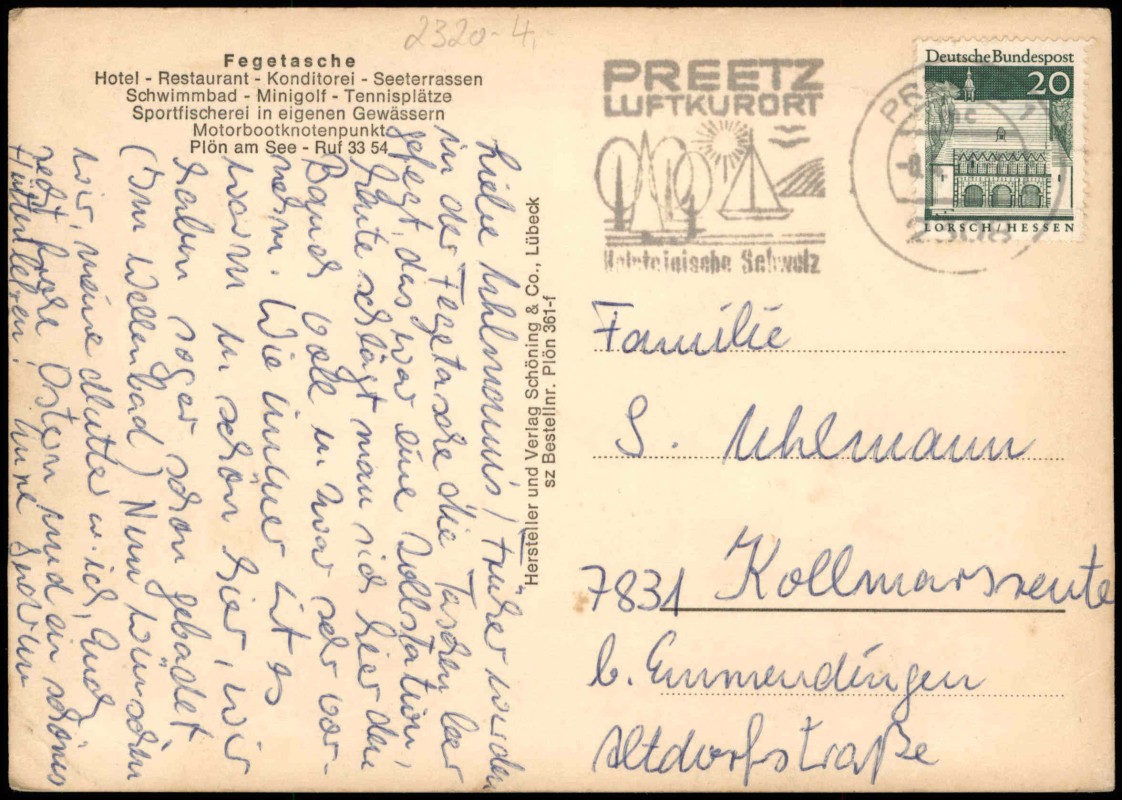 2320-4,
Fegetasche
Hotel - Restaurant - Konditorei - Seeterrassen
Schwimmbad - Minigolf - Tennisplätze
Sportfischerei in eigenen Gewässern
Motorbootknotenpunkt
Plön am See - Ruf 33 54
PREETZ
LUFTKURORT
Holsteinische Schweiz
Deutsche Bundespost
20
LORSCH / HESSEN
Liebe Uhlmann's! Früher wurden
in der Fegetasche die Taschen leer
gefegt, das war eine Zollstation,
heute schlägt man sich hier den
Bauch voll u. zwar sehr vor-
nehm. Wie immer ist es
warm u. schön hier, wir
haben sogar schon gebadet
(Im Wellenbad) Nun wünschen
wir, meine Mutter u. ich, Euch
sehr frohe Ostern und ein schönes
Hüttenleben! Eure Gudrun
Hersteller und Verlag Schöning & Co., Lübeck
sz Bestellnr. Plön 361-f
Familie
S. Uhlmann
7831 Kollmarsreute
b. Emmendingen
Altdorfstraße